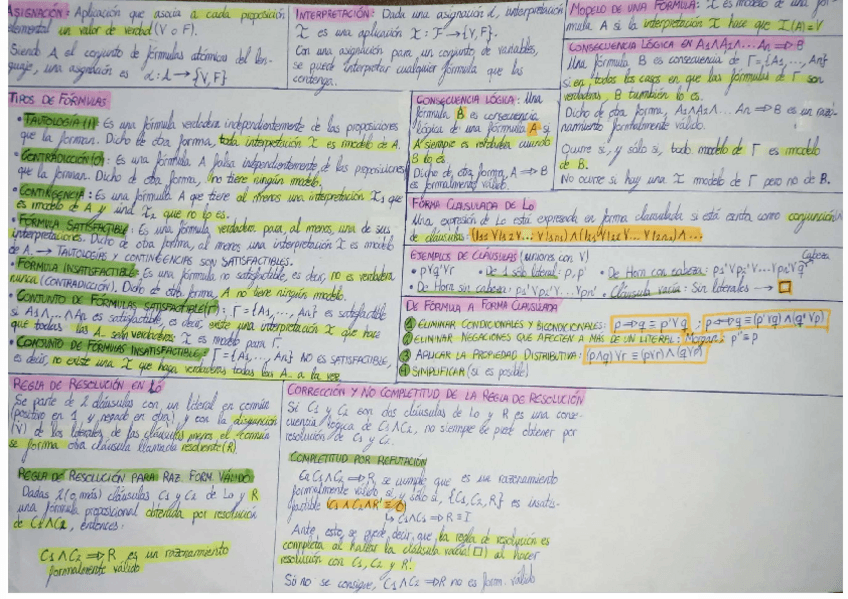 ASIGNACIÓN: Aplicación que asocia a cada proposición
elemental un valor de verdad (V o F).
Siendo A el conjunto de fórmulas atómicas del len-
guaje, una asignación es α: A → {V,F}
INTERPRETACIÓN: Dada una asignación α, interpretación
I es una aplicación I: F → {V,F}.
Con una asignación para un conjunto de variables,
se puede interpretar cualquier fórmula que las
contenga.
MODELO DE UNA FÓRMULA: I es modelo de una fór-
mula A si la interpretación I hace que I(A)=V
CONSECUENCIA LÓGICA EN A1∧A2∧... An ⇒ B
Una fórmula B es consecuencia de Γ={A1,...,An}
si en todos los casos en que las fórmulas de Γ son
verdaderas, B también lo es.
Dicho de otra forma, A1∧A2∧... An ⇒ B es un razo-
namiento formalmente válido.
Ocurre si, y sólo si, todo modelo de Γ es modelo
de B.
No ocurre si hay una I modelo de Γ pero no de B.
TIPOS DE FÓRMULAS
• TAUTOLOGÍA (I): Es una fórmula verdadera independientemente de las proposiciones
que la forman. Dicho de otra forma, toda interpretación I es modelo de A.
• CONTRADICCIÓN (O): Es una fórmula A falsa independientemente de las proposiciones
que la forman. Dicho de otra forma, no tiene ningún modelo.
• CONTINGENCIA: Es una fórmula A que tiene al menos una interpretación I1 que
es modelo de A y una I2 que no lo es.
• FÓRMULA SATISFACTIBLE: Es una fórmula verdadera para, al menos, una de sus
interpretaciones. Dicho de otra forma, al menos una interpretación I es modelo
de A. → TAUTOLOGÍAS Y CONTINGENCIAS SON SATISFACTIBLES.
• FÓRMULA INSATISFACTIBLE: Es una fórmula no satisfactible, es decir, no es verdadera
nunca (CONTRADICCIÓN). Dicho de otra forma, A no tiene ningún modelo.
• CONJUNTO DE FÓRMULAS SATISFACTIBLE (Γ): Γ={A1,...,An} es satisfactible
si A1∧...∧An es satisfactible, es decir, existe una interpretación I que hace
que todas las An sean verdaderas: I es modelo para Γ.
• CONJUNTO DE FÓRMULAS INSATISFACTIBLE: Γ={A1,...,An} NO ES SATISFACTIBLE,
es decir, no existe una I que haga verdaderas todas las An a la vez
CONSECUENCIA LÓGICA: Una
fórmula B es consecuencia
lógica de una fórmula A si
A siempre es verdadera cuando
B lo es.
Dicho de otra forma, A ⇒ B
es formalmente válido.
FORMA CLAUSULADA DE Lo
Una expresión de Lo está expresada en forma clausulada si está escrita como conjunción ∧
de cláusulas:
EJEMPLOS DE CLÁUSULAS (uniones con V)
Cabeza
• p∨q'∨r • De 1 sólo literal: p, p' • De Horn con cabeza: p1'∨p2'∨...∨pn'∨q
• De Horn sin cabeza: p1'∨p2'∨...∨pn' • Cláusula vacía: Sin literales → □
DE FÓRMULA A FORMA CLAUSULADA
1 ELIMINAR CONDICIONALES Y BICONDICIONALES: p→q ≡ p'∨q , p↔q ≡ (p'∨q)∧(q'∨p)
2 ELIMINAR NEGACIONES QUE AFECTEN A MÁS DE UN LITERAL: Morgan, p''≡p
3 APLICAR LA PROPIEDAD DISTRIBUTIVA: (p∧q)∨r ≡ (p∨r)∧(q∨r)
4 SIMPLIFICAR (si es posible)
REGLA DE RESOLUCIÓN EN Lo
Se parte de 2 cláusulas con un literal en común
(positivo en 1 y negado en otra) y con la disyunción
(V) de los literales de las cláusulas menos el común
se forma otra cláusula llamada resolvente (R)
REGLA DE RESOLUCIÓN PARA RAZ. FORM. VÁLIDO
Dadas 2 (o más) cláusulas C1 y C2 de Lo y R
una fórmula proposicional obtenida por resolución
de C1 y C2, entonces:
C1∧C2 ⇒ R es un razonamiento
formalmente válido
CORRECCIÓN Y NO COMPLETITUD DE LA REGLA DE RESOLUCIÓN
Si C1 y C2 son dos cláusulas de Lo y R es una conse-
cuencia lógica de C1∧C2, no siempre se puede obtener por
resolución de C1 y C2.
COMPLETITUD POR REFUTACIÓN
C1∧C2 ⇒ R se cumple que es un razonamiento
formalmente válido si, y sólo si, {C1,C2,R'} es insatis-
factible (C1∧C2∧R' ≡ O)
↳ C1∧C2 ⇒ R ≡ I
Ante esto, se puede decir que la regla de resolución es
completa al hallar la cláusula vacía (□) al hacer
resolución con C1, C2 y R'.
Si no se consigue, C1∧C2 ⇒ R no es form. válido